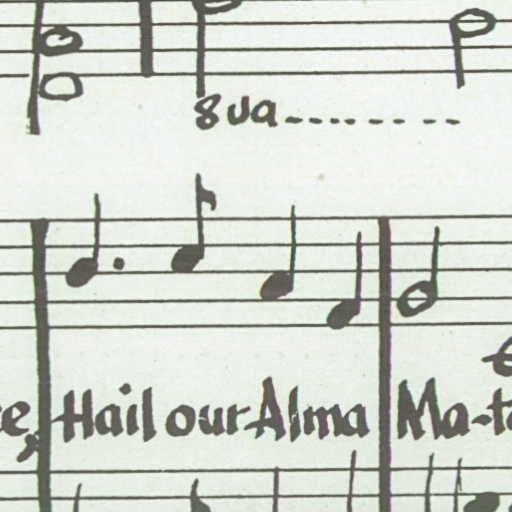 8va
Hail our Alma Ma-